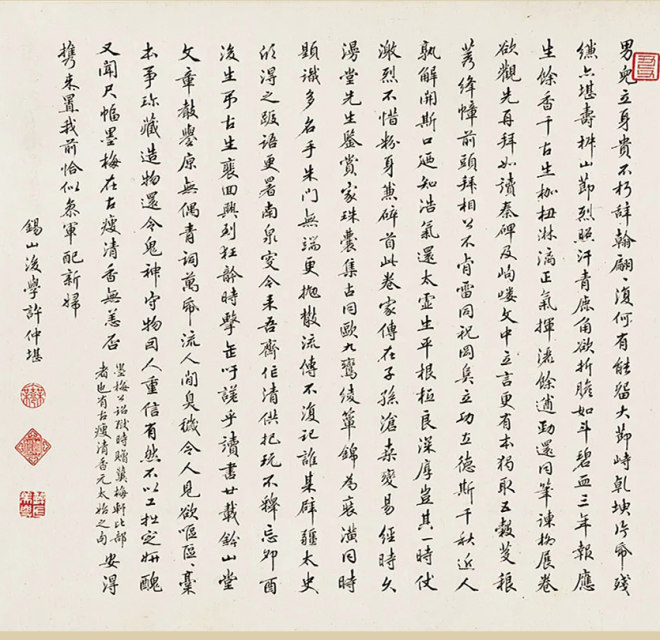 男兒立身貴不朽辭翰翩翩復何有能留大節峙乾坤片帋殘
縑亦堪壽椒山節烈照汗青鹿角欲折膽如斗碧血三年報應
生餘香千古生枷杻淋漓正氣揮灑餘遒勁還同筆諫柳展卷
欲觀先再拜如讀秦碑及岣嶁文中立言更有本獨取五穀芟稂
莠絳幃前頭拜相公不肯雷同祝岡阜立功立德斯千秋近人
孰解開斯口廼知浩氣還太虛生平根柢良深厚豈其一時仗
激烈不惜粉身兼碎首此卷家傳在子孫滄桑變易經時久
漫堂先生鑒賞家珠囊集古同歐九鸞綾簟錦為裝潢同時
題識多名手朱門無端更拋散流傳不復記誰某辟疆太史
欣得之跋語更署南泉叟今來吾齋作清供把玩不釋忘卯酉
後生弔古生裵回興到狂歌時擊缶吁嗟乎讀書廿載鈐山堂
文章聲譽原無偶青詞萬帋流人間臭穢令人見欲嘔區區藁
本事珍藏造物還令鬼神守物因人重信有然不以工拙定妍醜
又聞尺幅墨梅在古瘦清香無恙否
墨梅公詔獄時贈冀梅軒比部
者也有古瘦清香元太始之句
安得
攜來置我前恰似參軍配新婦
錫山後學許仲堪